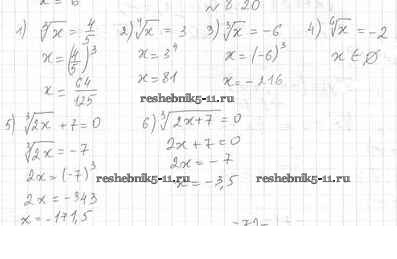 x = 6
№ 8.20
1) ∛x = 4/5
x = (4/5)³
x = 64/125
2) ⁴√x = 3
x = 3⁴
x = 81
3) ∛x = -6
x = (-6)³
x = -216
4) ⁶√x = -2
x ∈ ∅
reshebnik5-11.ru
5) ∛2x + 7 = 0
∛2x = -7
2x = (-7)³
2x = -343
x = -171,5
6) ∛2x+7 = 0
2x + 7 = 0
2x = -7
x = -3,5
reshebnik5-11.ru
reshebnik5-11.ru